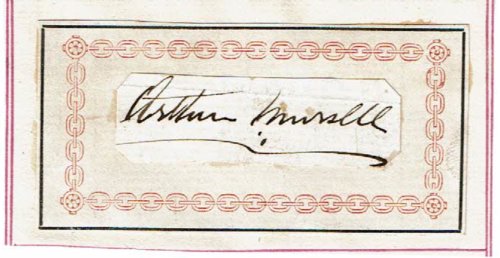 Arthur Mursell